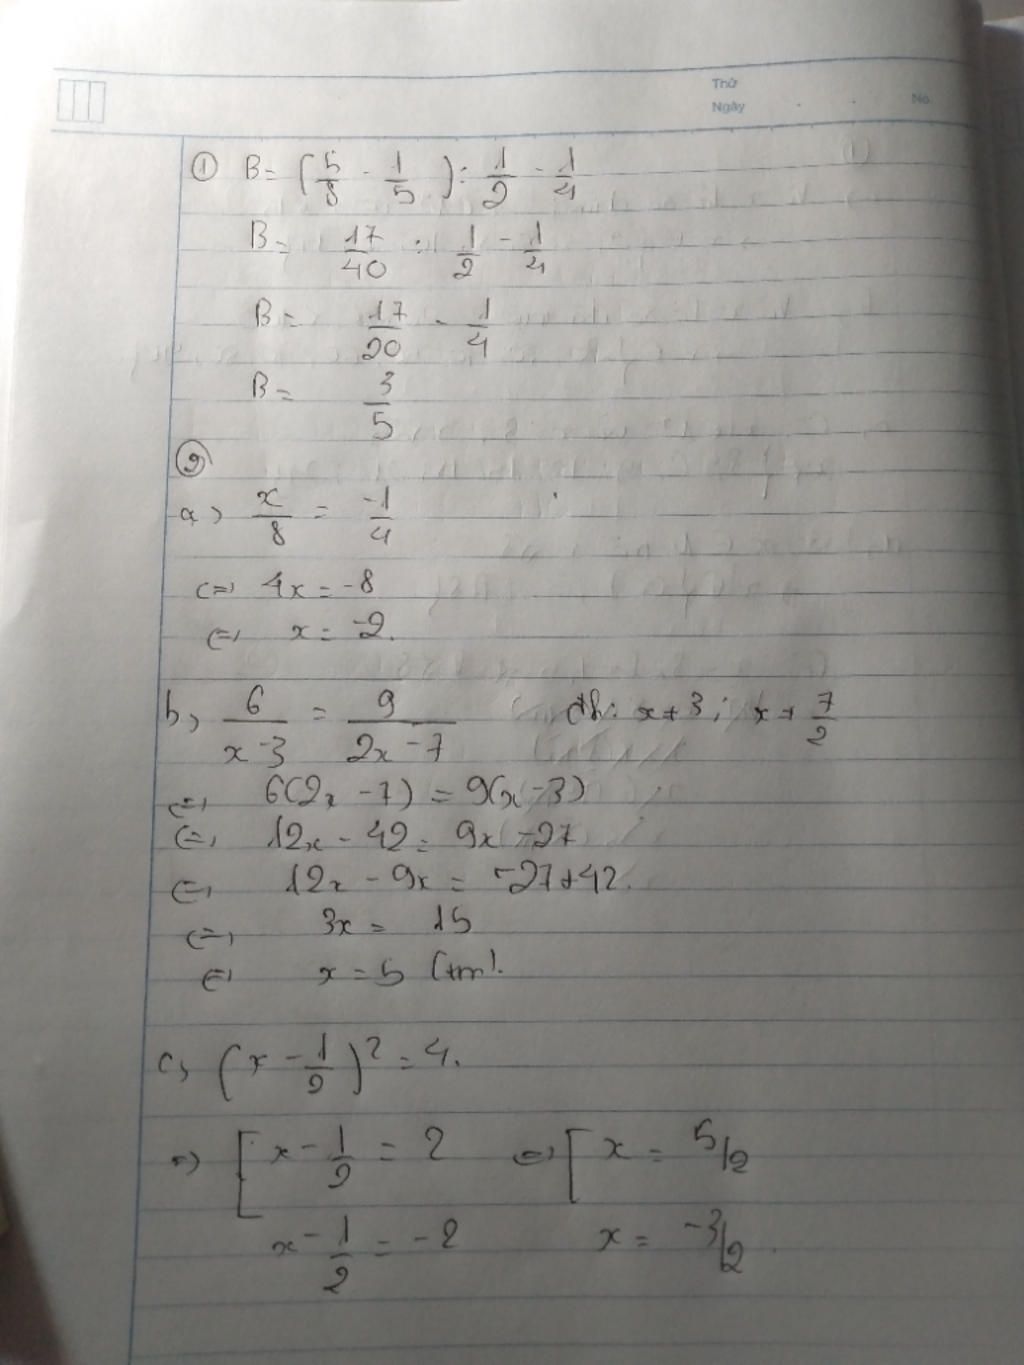 Thứ
Ngày . . No.
① B = (5/8 - 1/5) : 1/2 - 1/4
B = 17/40 : 1/2 - 1/4
B = 17/20 - 1/4
B = 3/5
②
a) x/8 = -1/4
<=> 4x = -8
<=> x = -2.
b, 6/(x-3) = 9/(2x-7) đk: x ≠ 3; x ≠ 7/2
<=> 6(2x - 7) = 9(x - 3)
<=> 12x - 42 = 9x - 27
<=> 12x - 9x = -27 + 42.
<=> 3x = 15
<=> x = 5 (tm).
c, (x - 1/2)² = 4.
=> [ x - 1/2 = 2 <=> [ x = 5/2
x - 1/2 = -2 x = -3/2.